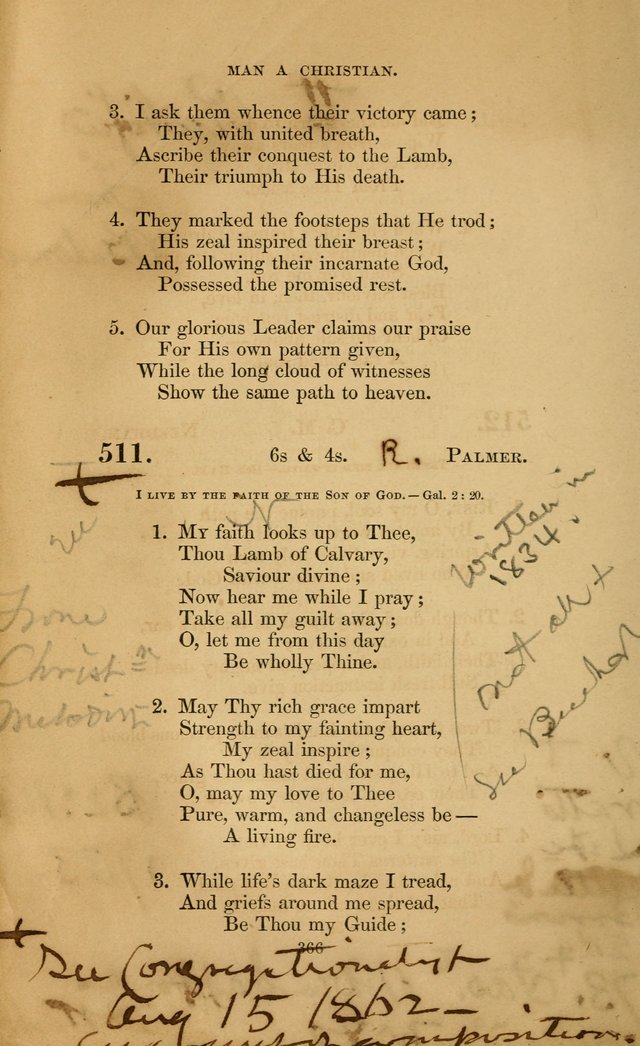 MAN A CHRISTIAN.
3. I ask them whence their victory came;
They, with united breath,
Ascribe their conquest to the Lamb,
Their triumph to His death.
4. They marked the footsteps that He trod;
His zeal inspired their breast;
And, following their incarnate God,
Possessed the promised rest.
5. Our glorious Leader claims our praise
For His own pattern given,
While the long cloud of witnesses
Show the same path to heaven.
511. 6s & 4s. R. PALMER.
I LIVE BY THE FAITH OF THE SON OF GOD.—Gal. 2: 20.
1. My faith looks up to Thee,
Thou Lamb of Calvary,
Saviour divine;
Now hear me while I pray;
Take all my guilt away;
O, let me from this day
Be wholly Thine.
Written in
1834.
not all +
See Beecher
Christn
2. May Thy rich grace impart
Strength to my fainting heart,
My zeal inspire;
As Thou hast died for me,
O, may my love to Thee
Pure, warm, and changeless be—
A living fire.
3. While life's dark maze I tread,
And griefs around me spread,
Be Thou my Guide;
366
+ See Congregationalist
Aug 15 1862—
composition.